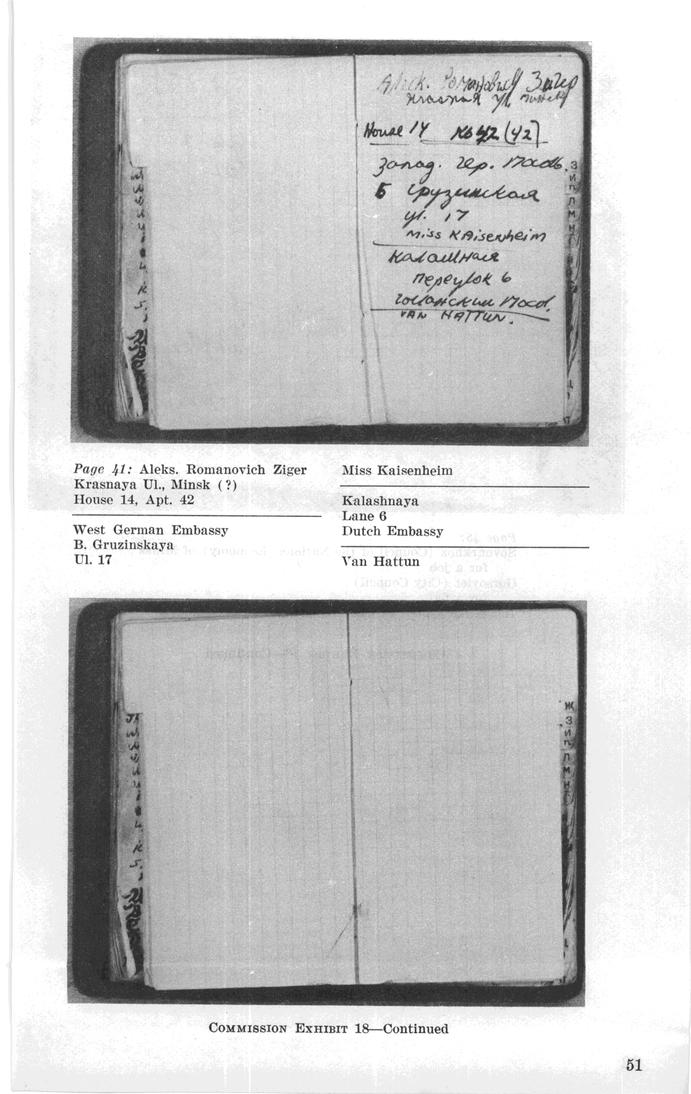 Алек. Романович Зигер
Красная ул. Минск
House 14 Кв 42 (42)
Запад. Гер. Посоль.
Б Грузинская
ул. 17
Miss KAisenheim
Калашная
переулок 6
Голланский Посол.
VAN HATTUN.
З
И
П
Л
М
Н
Page 41: Aleks. Romanovich Ziger
Krasnaya Ul., Minsk (?)
House 14, Apt. 42
West German Embassy
B. Gruzinskaya
Ul. 17
Miss Kaisenheim
Kalashnaya
Lane 6
Dutch Embassy
Van Hattun
Ж
З
И
П
Л
М
Н
COMMISSION EXHIBIT 18—Continued
51